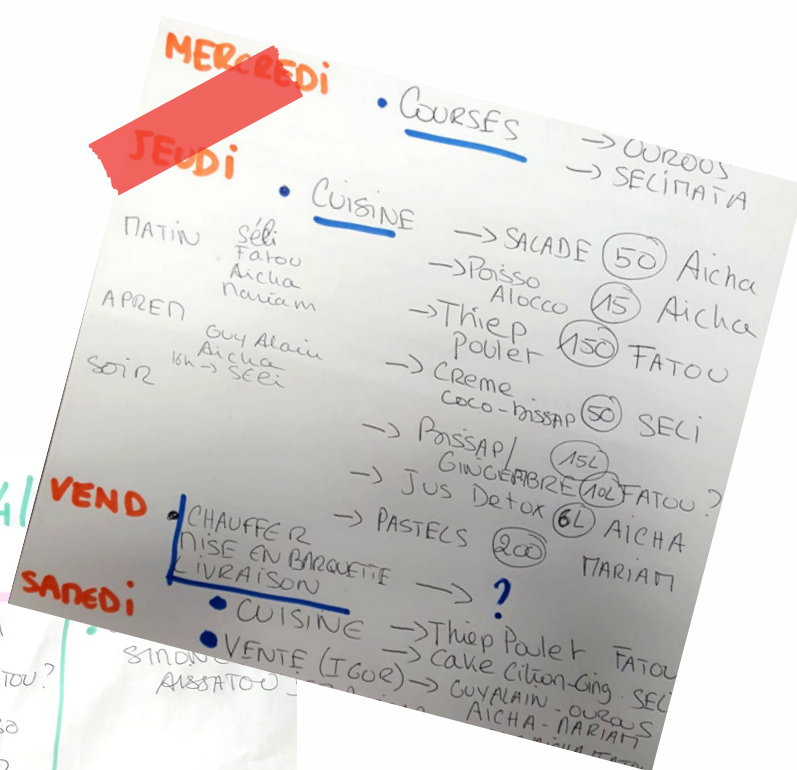 MERCREDI
• COURSES
→ OUROUS
→ SELIMATA
JEUDI
• CUISINE
MATIN Séli
Fatou
Aicha
Mariam
APREM
Guy Alain
Aicha
SOIR 16h → Seli
→ SALADE 50 Aicha
→ Poisso
Alocco 15 Aicha
→ Thiep
Poulet 150 FATOU
→ Creme
coco-bissap 50 SELI
→ Bissap/ 15L
GINGEMBRE 10L FATOU ?
→ Jus Detox 6L AICHA
→ PASTELS 200 MARIAM
VEND
• CHAUFFER
MISE EN BARQUETTE
LIVRAISON → ?
SAMEDI
• CUISINE → Thiep Poulet FATOU
→ Cake Citron-Ging. SELI
• VENTE (IGOR) → GUYALAIN - OUROUS
AICHA - MARIAM
TOU ?
AISSATOU